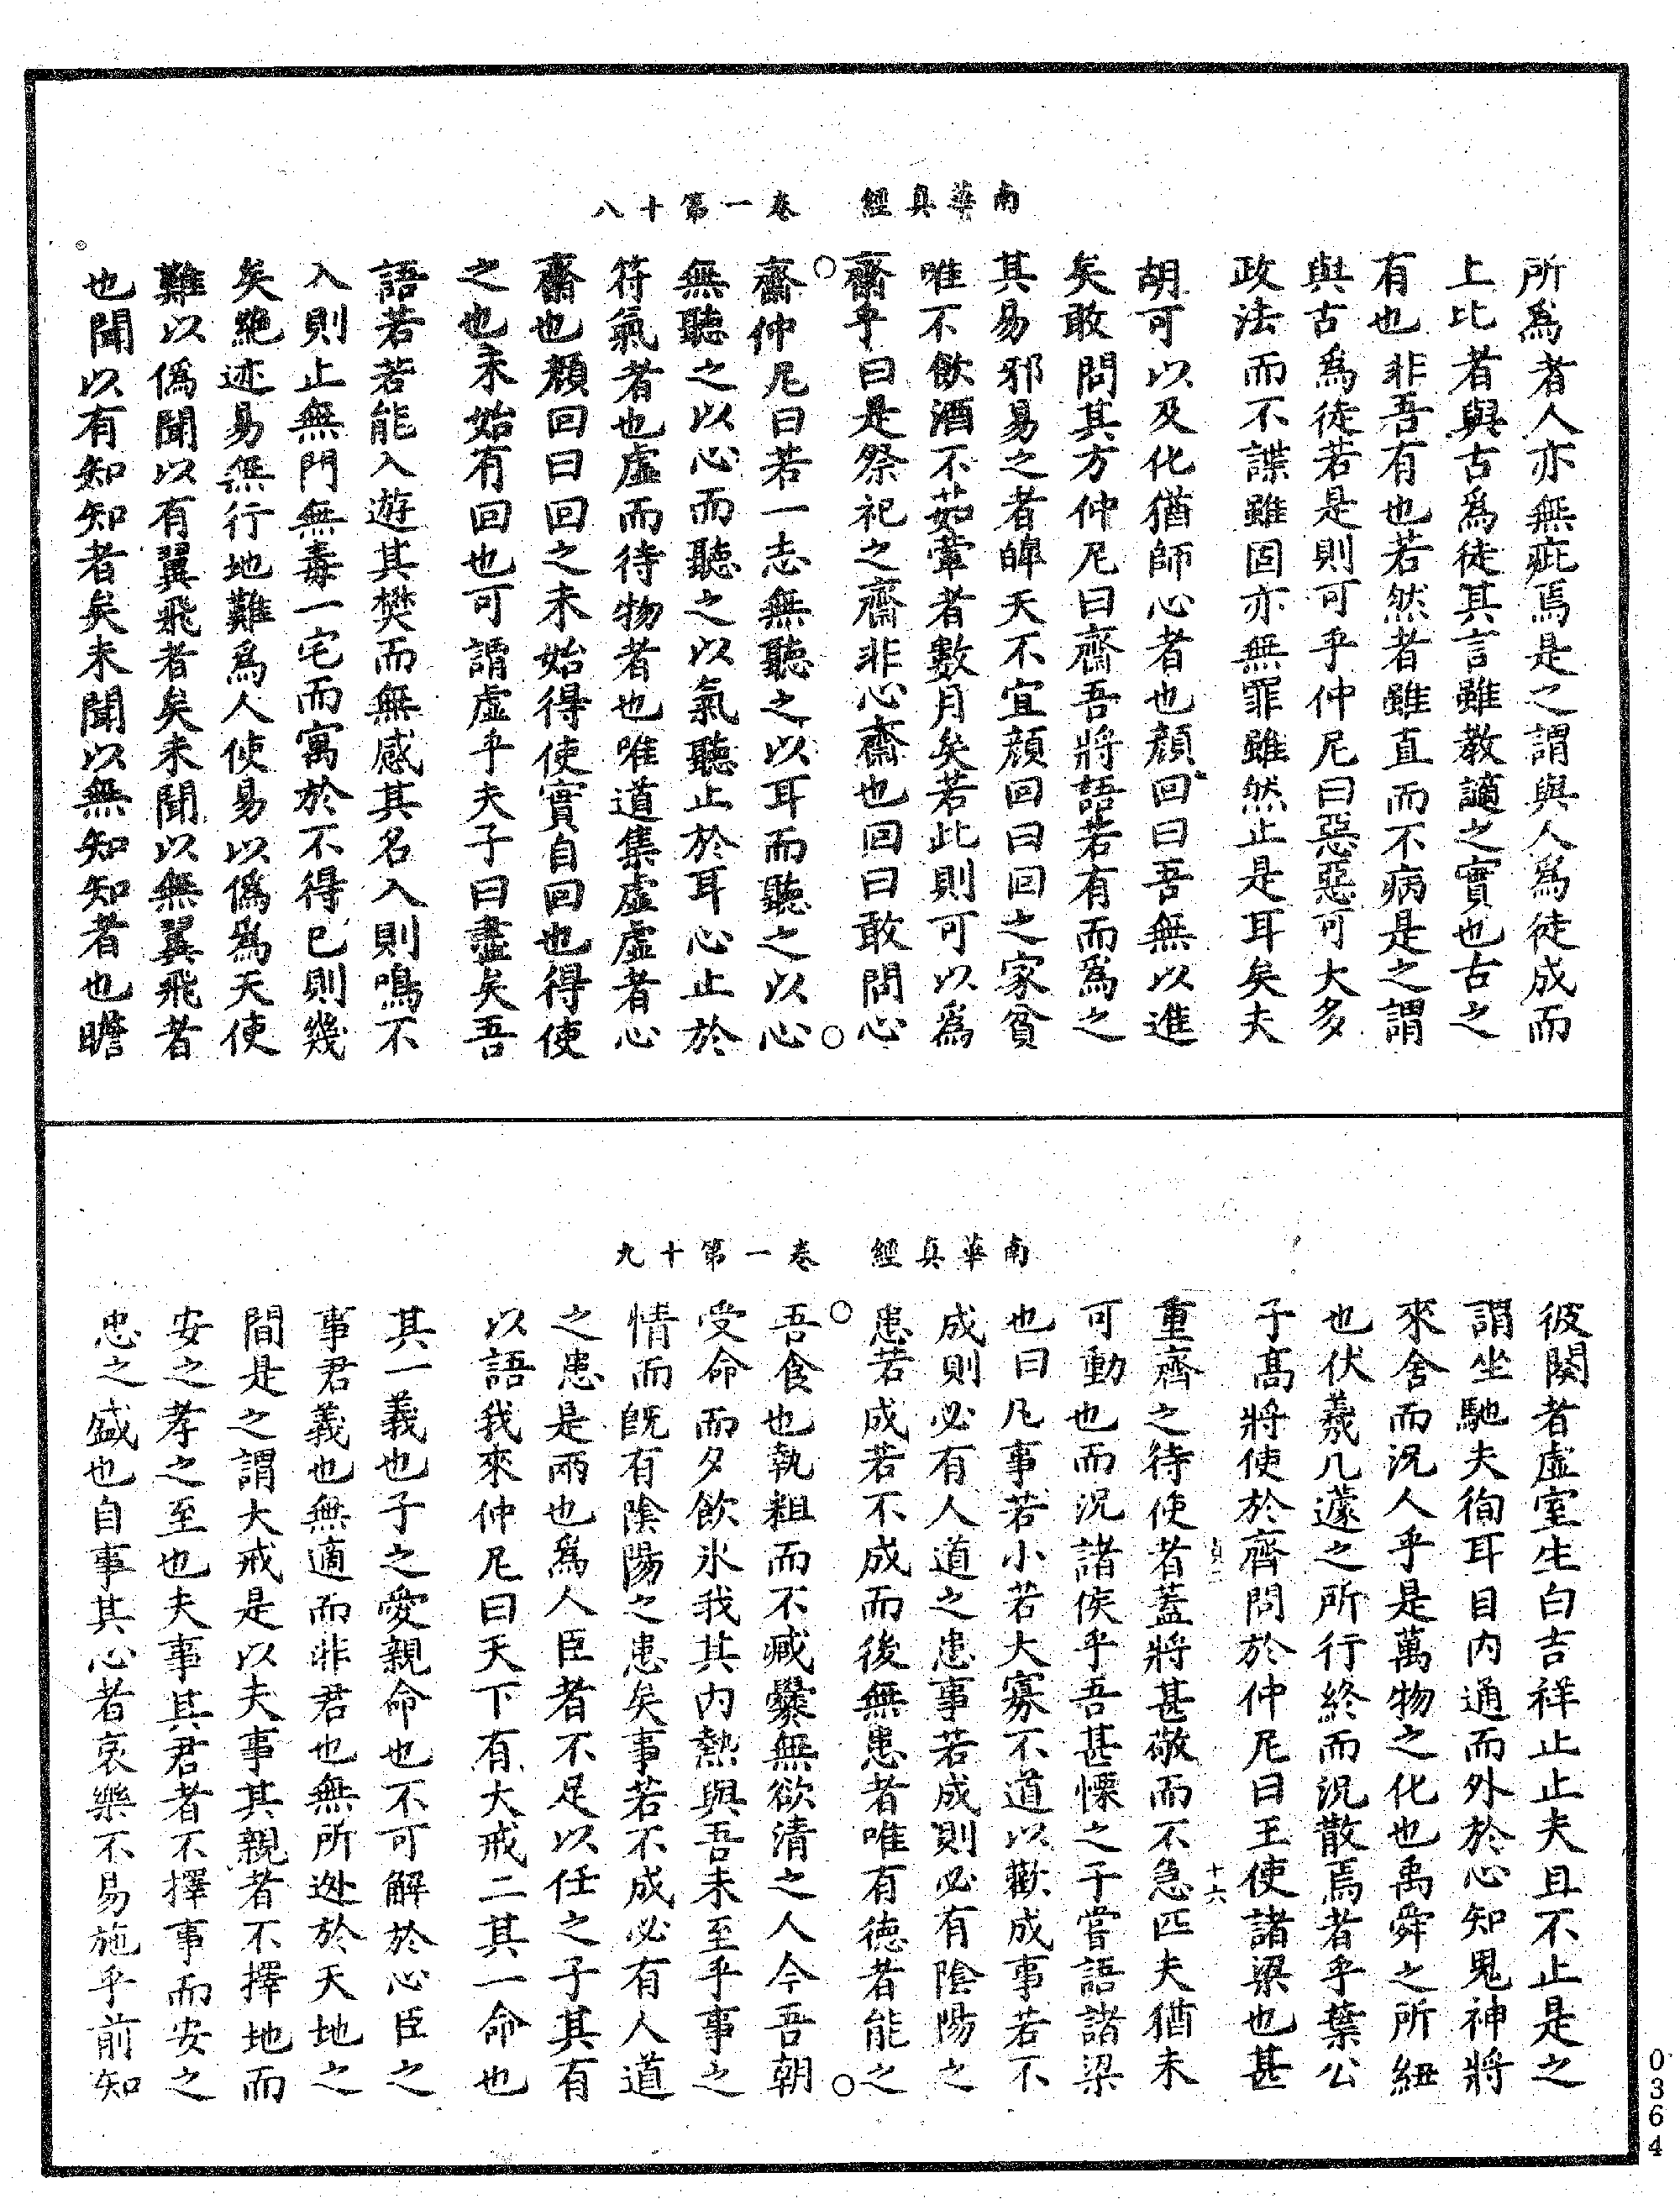 南華真經　卷一第十八
所爲者人亦無疵焉是之謂與人爲徒成而
上比者與古爲徒其言雖教讁之實也古之
有也非吾有也若然者雖直而不病是之謂
與古爲徒若是則可乎仲尼曰惡惡可大多
政法而不諜雖固亦無罪雖然止是耳矣夫
胡可以及化猶師心者也顔回曰吾無以進
矣敢問其方仲尼曰齋吾將語若有而爲之
其易邪易之者皥天不宜顔回曰回之家貧
唯不飲酒不茹葷者數月矣若此則可以爲
齋乎曰是祭祀之齋非心齋也回曰敢問心
齋仲尼曰若一志無聽之以耳而聽之以心
無聽之以心而聽之以氣聽止於耳心止於
符氣者也虛而待物者也唯道集虛虛者心
齋也顔回曰回之未始得使實自回也得使
之也未始有回也可謂虛乎夫子曰盡矣吾
語若若能入遊其樊而無感其名入則鳴不
入則止無門無毒一宅而寓於不得已則幾
矣絶迹易無行地難爲人使易以僞爲天使
難以僞聞以有翼飛者矣未聞以無翼飛者
也聞以有知知者矣未聞以無知知者也瞻
南華真經　卷一第十九
彼闋者虛室生白吉祥止止夫且不止是之
謂坐馳夫徇耳目内通而外於心知鬼神將
來舍而況人乎是萬物之化也禹舜之所紐
也伏羲几蘧之所行終而況散焉者乎葉公
子髙將使於齊問於仲尼曰王使諸梁也甚
十六
重齊之待使者蓋將甚敬而不急匹夫猶未
可動也而況諸侯乎吾甚慄之子嘗語諸梁
也曰凡事若小若大寡不道以歡成事若不
成則必有人道之患事若成則必有陰陽之
患若成若不成而後無患者唯有德者能之
吾食也執粗而不臧爨無欲清之人今吾朝
受命而夕飲氷我其内熱與吾未至乎事之
情而旣有陰陽之患矣事若不成必有人道
之患是兩也爲人臣者不足以任之子其有
以語我來仲尼曰天下有大戒二其一命也
其一義也子之愛親命也不可解於心臣之
事君義也無適而非君也無所逃於天地之
間是之謂大戒是以夫事其親者不擇地而
安之孝之至也夫事其君者不擇事而安之
忠之盛也自事其心者哀樂不易施乎前知
0364